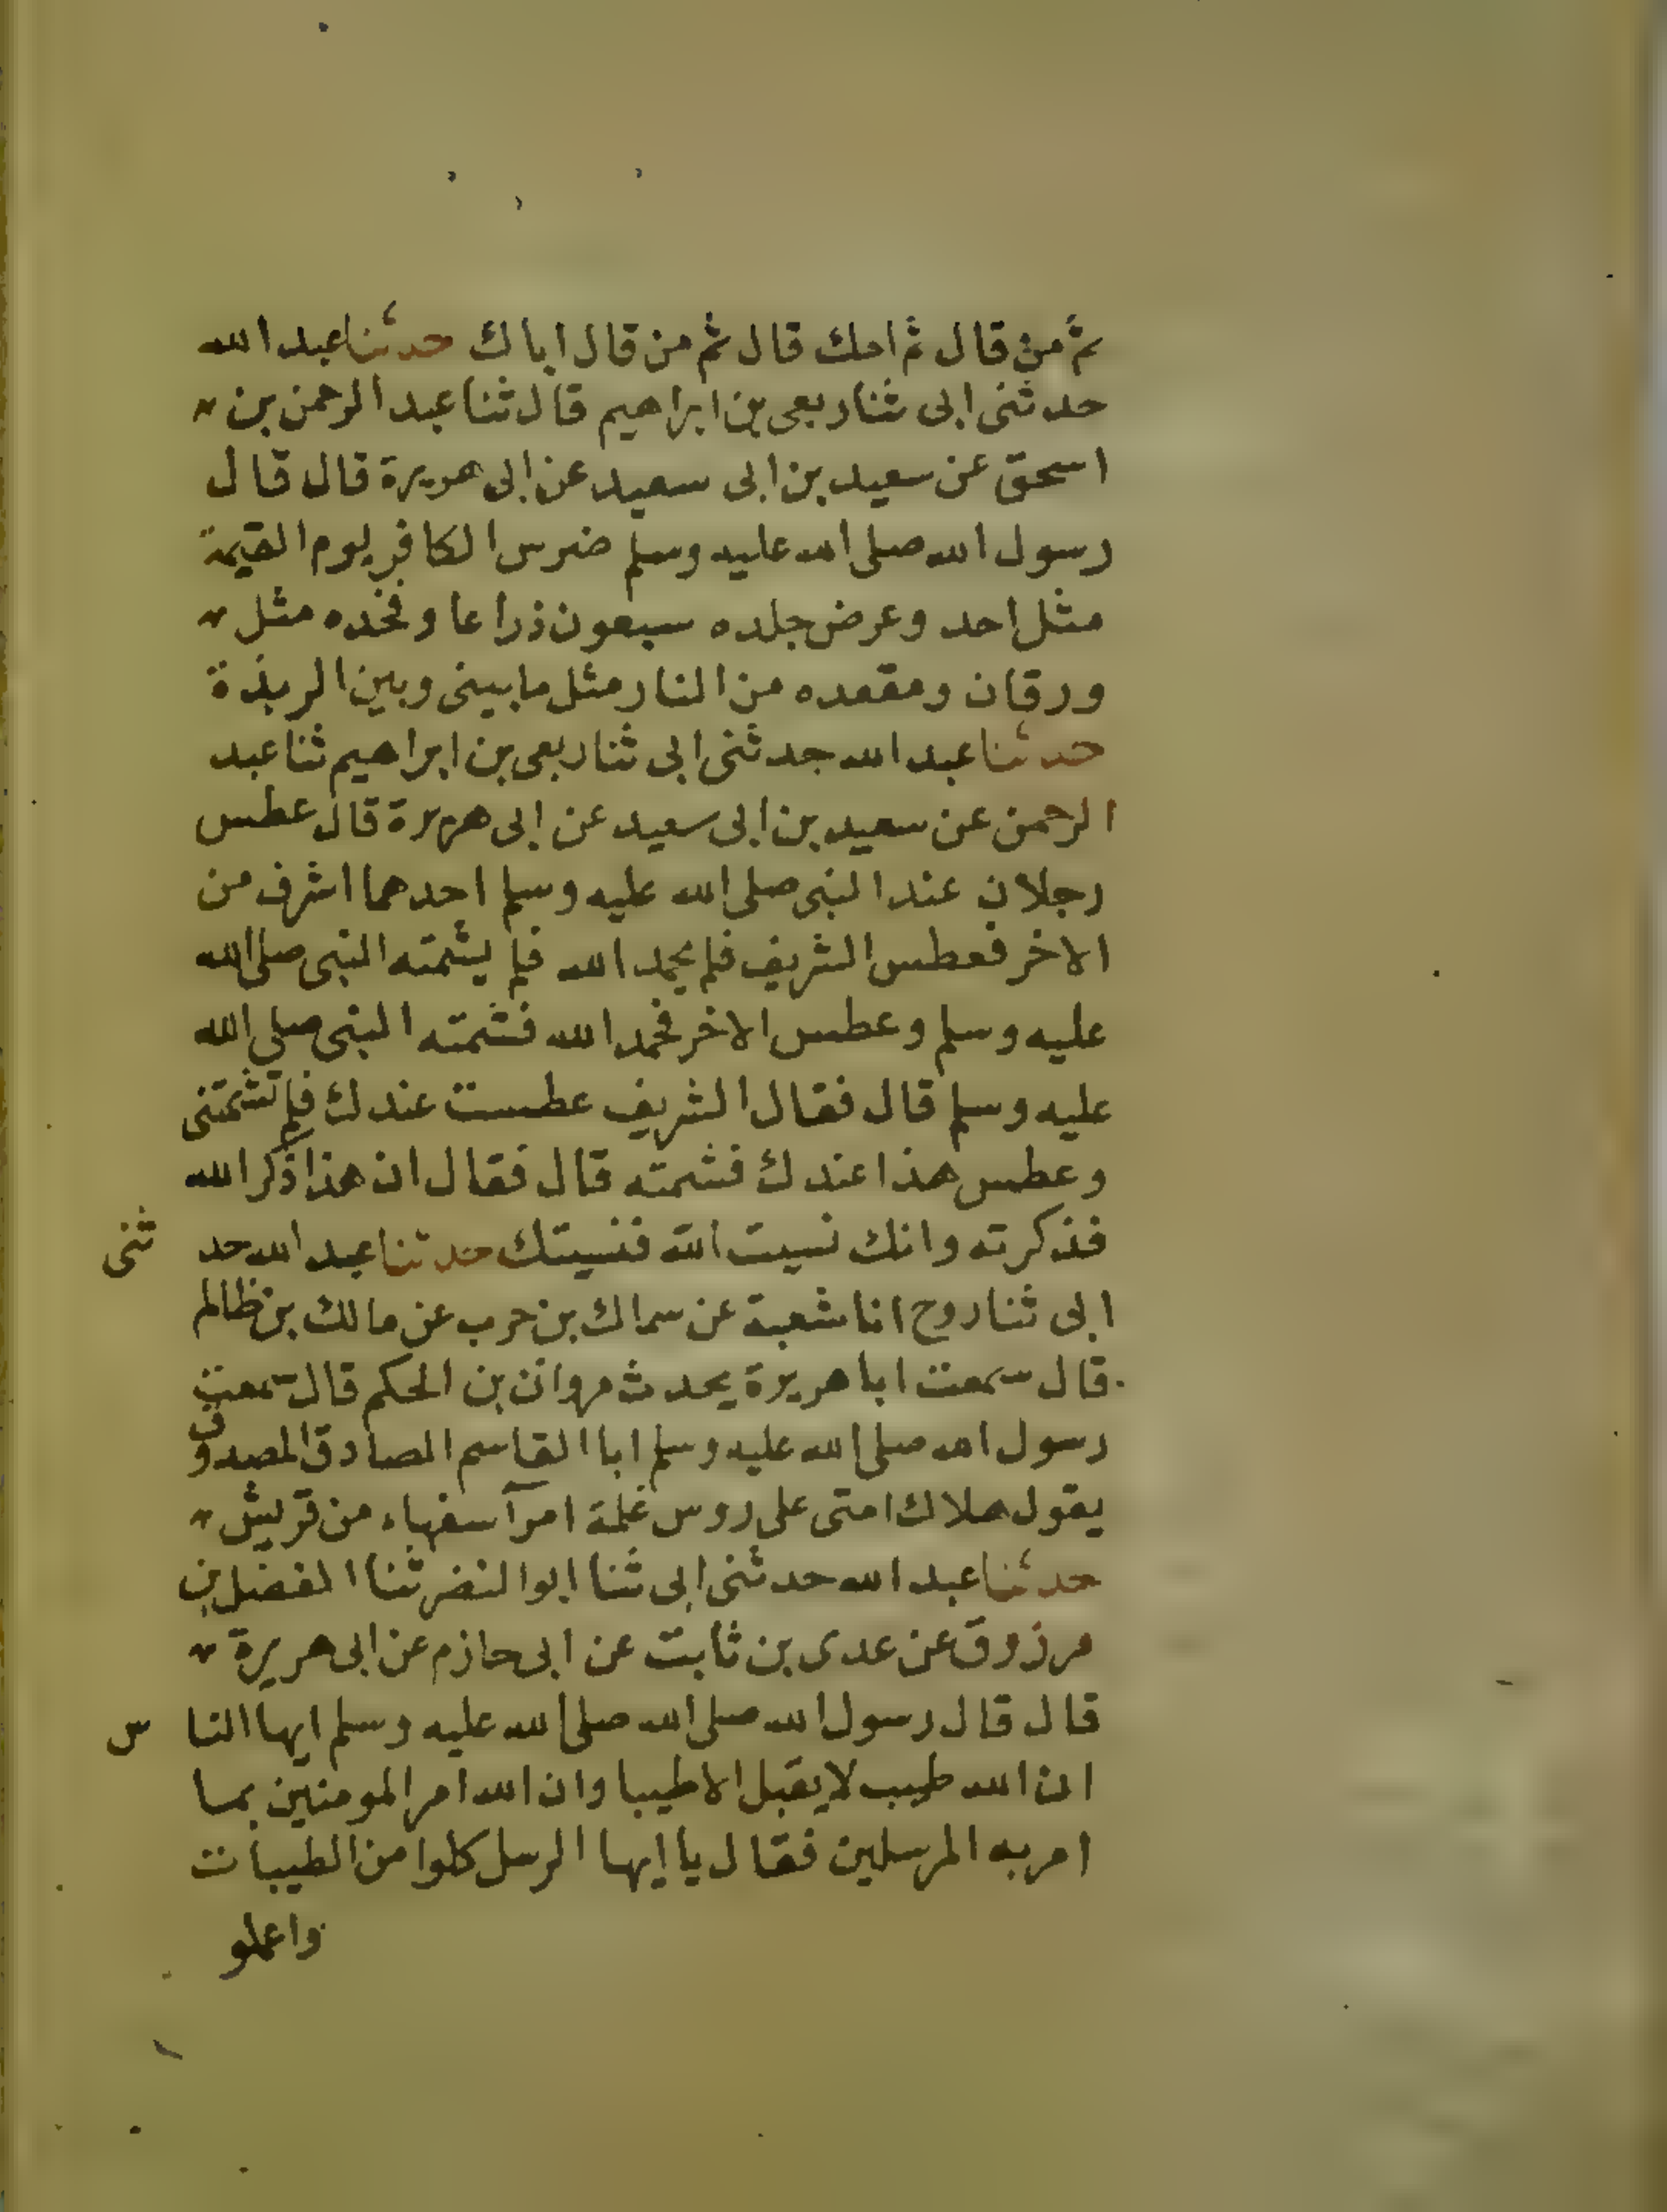 ثم من قال ثم امك قال ثم من قال اباك حدثنا عبد الله
حدثنى ابى ثنا ربعى بن ابراهيم قال ثنا عبد الرحمن بن
اسحق عن سعيد بن ابى سعيد عن ابى هريرة قال قال
رسول الله صلى الله عليه وسلم ضرس الكافر يوم القيمة
مثل احد وعرض جلده سبعون ذراعا وفخده مثل
ورقان ومقعده من النار مثل ما بينى وبين الربذة
حدثنا عبد الله حدثنى ابى ثنا ربعى بن ابراهيم ثنا عبد
الرحمن عن سعيد بن ابى سعيد عن ابى هريرة قال عطس
رجلان عند النبى صلى الله عليه وسلم احدهما اشرف من
الاخر فعطس الشريف فلم يحمد الله فلم يشمته النبى صلى الله
عليه وسلم وعطس الاخر فحمد الله فشمته النبى صلى الله
عليه وسلم قال فقال الشريف عطست عندك فلم تشمتنى
وعطس هذا عندك فشمته قال فقال ان هذا ذكر الله
فذكرته وانك نسيت الله فنسيتك حدثنا عبد الله حد ثنى
ابى ثنا روح انا شعبة عن سماك بن حرب عن مالك بن ظالم
قال سمعت ابا هريرة يحدث مروان بن الحكم قال سمعت
رسول الله صلى الله عليه وسلم ابا القاسم الصادق المصدوق
يقول هلاك امتى على روس غلمة امرآ سفهاء من قريش
حدثنا عبد الله حدثنى ابى ثنا ابو النضر ثنا الفضل بن
مرزوق عن عدى بن ثابت عن ابى حازم عن ابى هريرة
قال قال رسول الله صلى الله صلى الله عليه وسلم ايها النا س
ان الله طيب لا يقبل الا طيبا وان الله امر المومنين بما
امر به المرسلين فقال يا ايها الرسل كلوا من الطيبات
واعملو